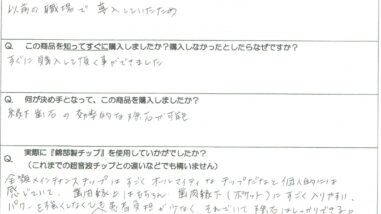 以前の職場で導入していたため
Q. この商品を知ってすぐに購入しましたか？購入しなかったとしたらなぜですか？
すぐに購入して頂く事ができました
Q. 何が決め手となって、この商品を購入しましたか？
縁下歯石の効率的な除石が可能
Q. 実際に『錦部製チップ』を使用していかがでしたか？
（これまでの超音波チップとの違いなどでも構いません）
金属メインテナンスチップはすごくオールマイティなチップだなと個人的には
感じていて、歯肉縁上はもちろん 歯肉縁下（ポケット）にすごく入りやすい。
パワーを強くしなくても患者負担が少なく、それでいて除石はしっかりできる。